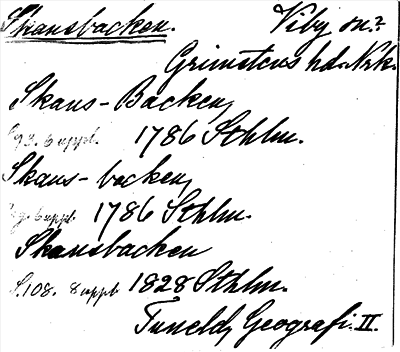 Skansbacken. Viby sn?
Grimstens hd. Nrk.
Skans-Backen,
S. 93. 6 uppl. 1786 Sthlm.
Skans-backen,
6 uppl. 1786 Sthlm.
Skansbacken
S. 108. 8 uppl 1828 Sthlm.
Tuneld, Geografi. II.